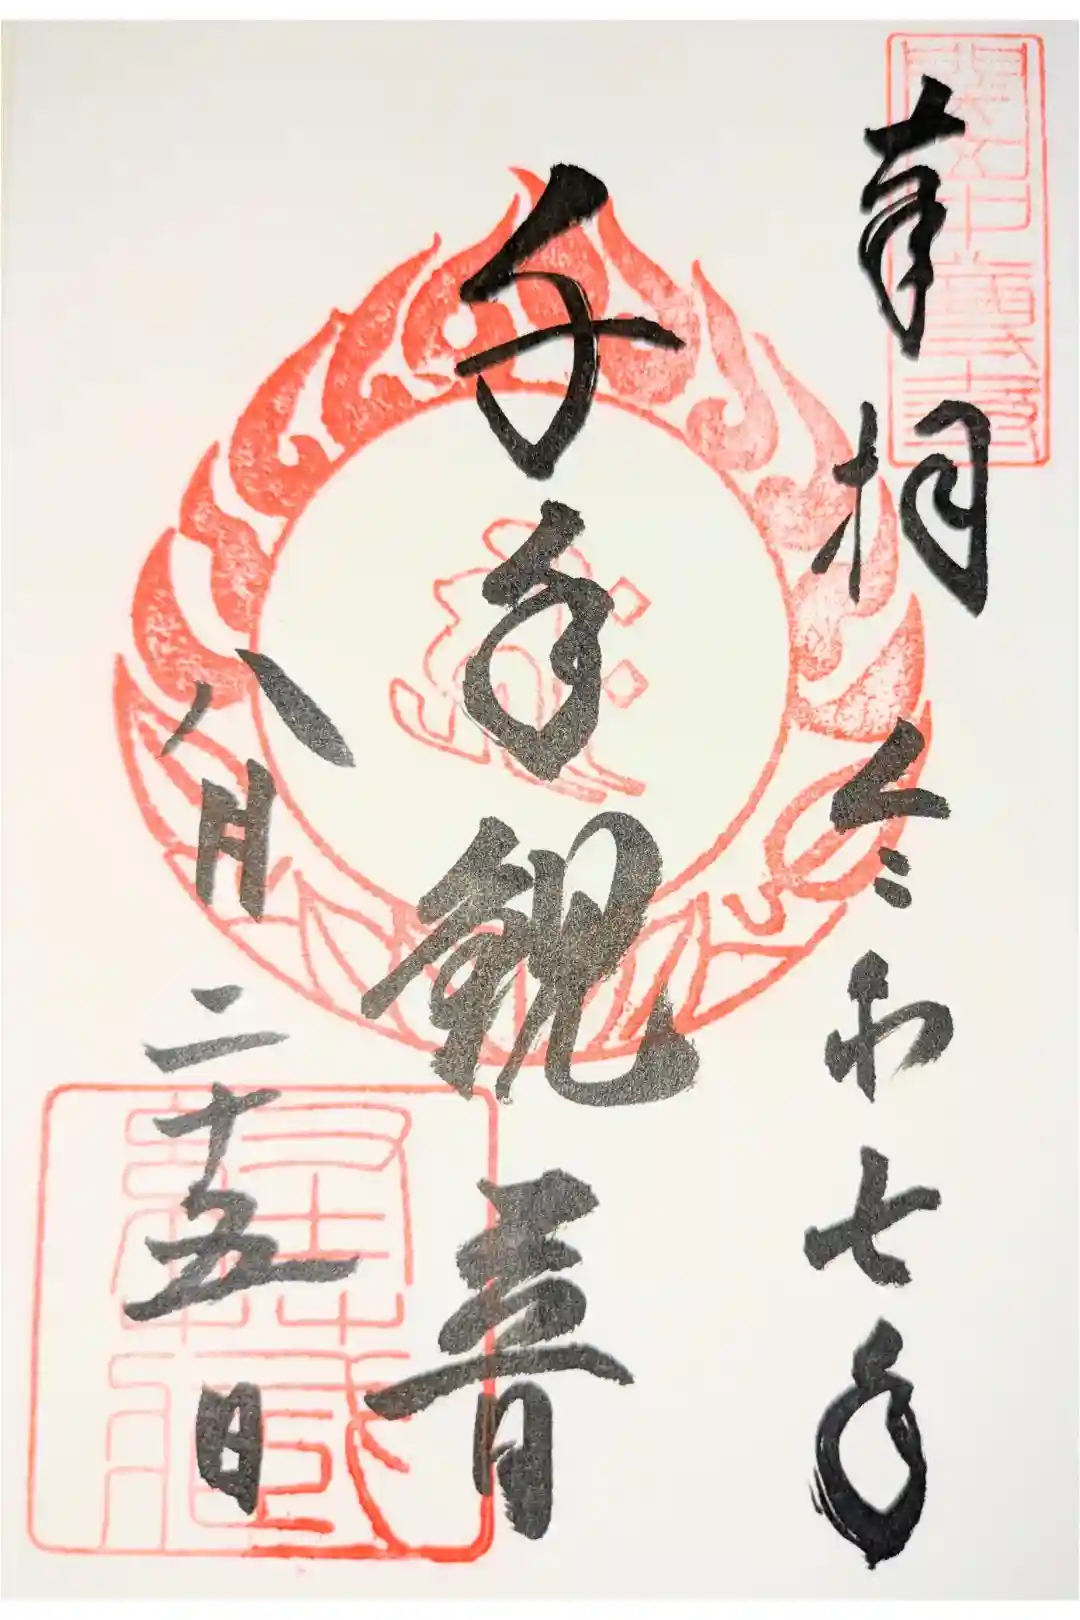 奉拝
令和七年
千手観音
八月二十五日